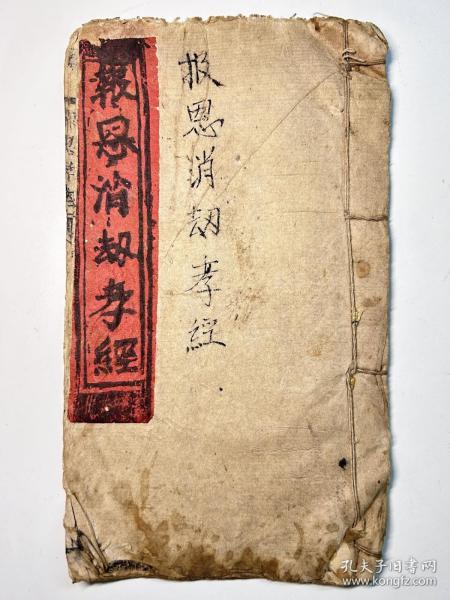 報恩消劫孝經
报恩消劫孝經
孔夫子旧书网
www.kongfz.com